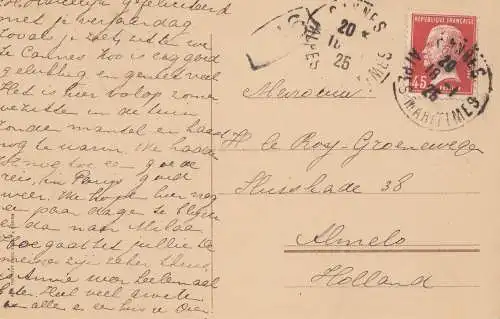 Hartelijk gefeliciteerd
met je verjaardag
zooals je ziet, zitten we
te Cannes
gelukkig en geniet veel
Het is hier volop zomer
we zitten in de tuin
zonder mantel en haast
nog te warm. We hadden
tot nog toe een goede
reis, in Parijs goed
weer. We hopen hier nog
een paar dagen te blijven
en dan naar Milaan
Hoe gaat het jullie
zij zeker
Annie weer heelemaal
beter. Heel veel groeten
van allen en een kus v.
CANNES
20 *
18
25
ALPES MARITIMES
REPUBLIQUE FRANÇAISE
45
CANNES
20
18
25
ALPES MARITIMES
Mevrouw
H. le Roy-Groeneweger
Sluiskade 38
Almelo
Holland